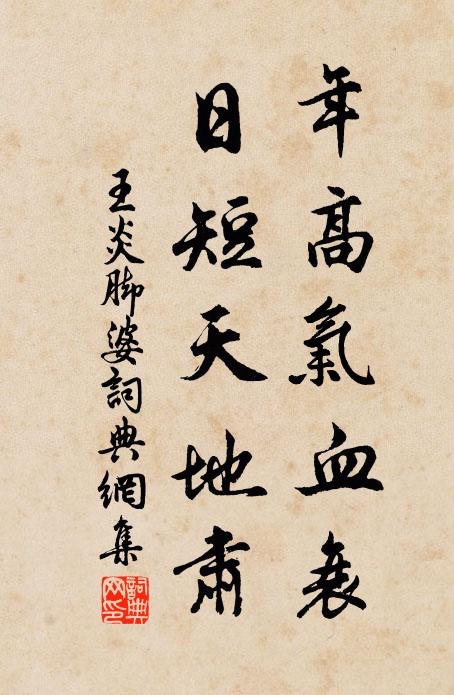 年高氣血衰
日短天地肅
王炎脚婆詞典網集
詞典網印